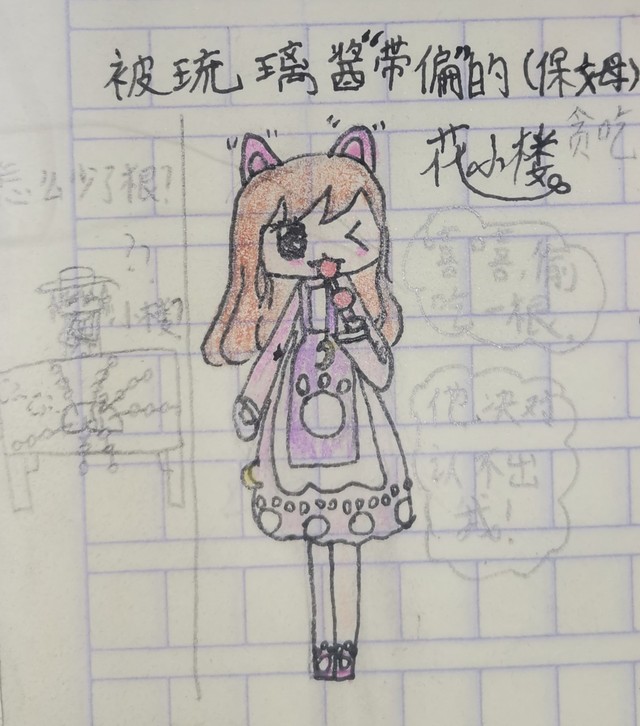 被琉璃酱“带偏”的(保姆)
花小楼
贪吃
怎么少了根?
??
小楼?
嘻嘻,偷
吃一根,
他决对
认不出
我!